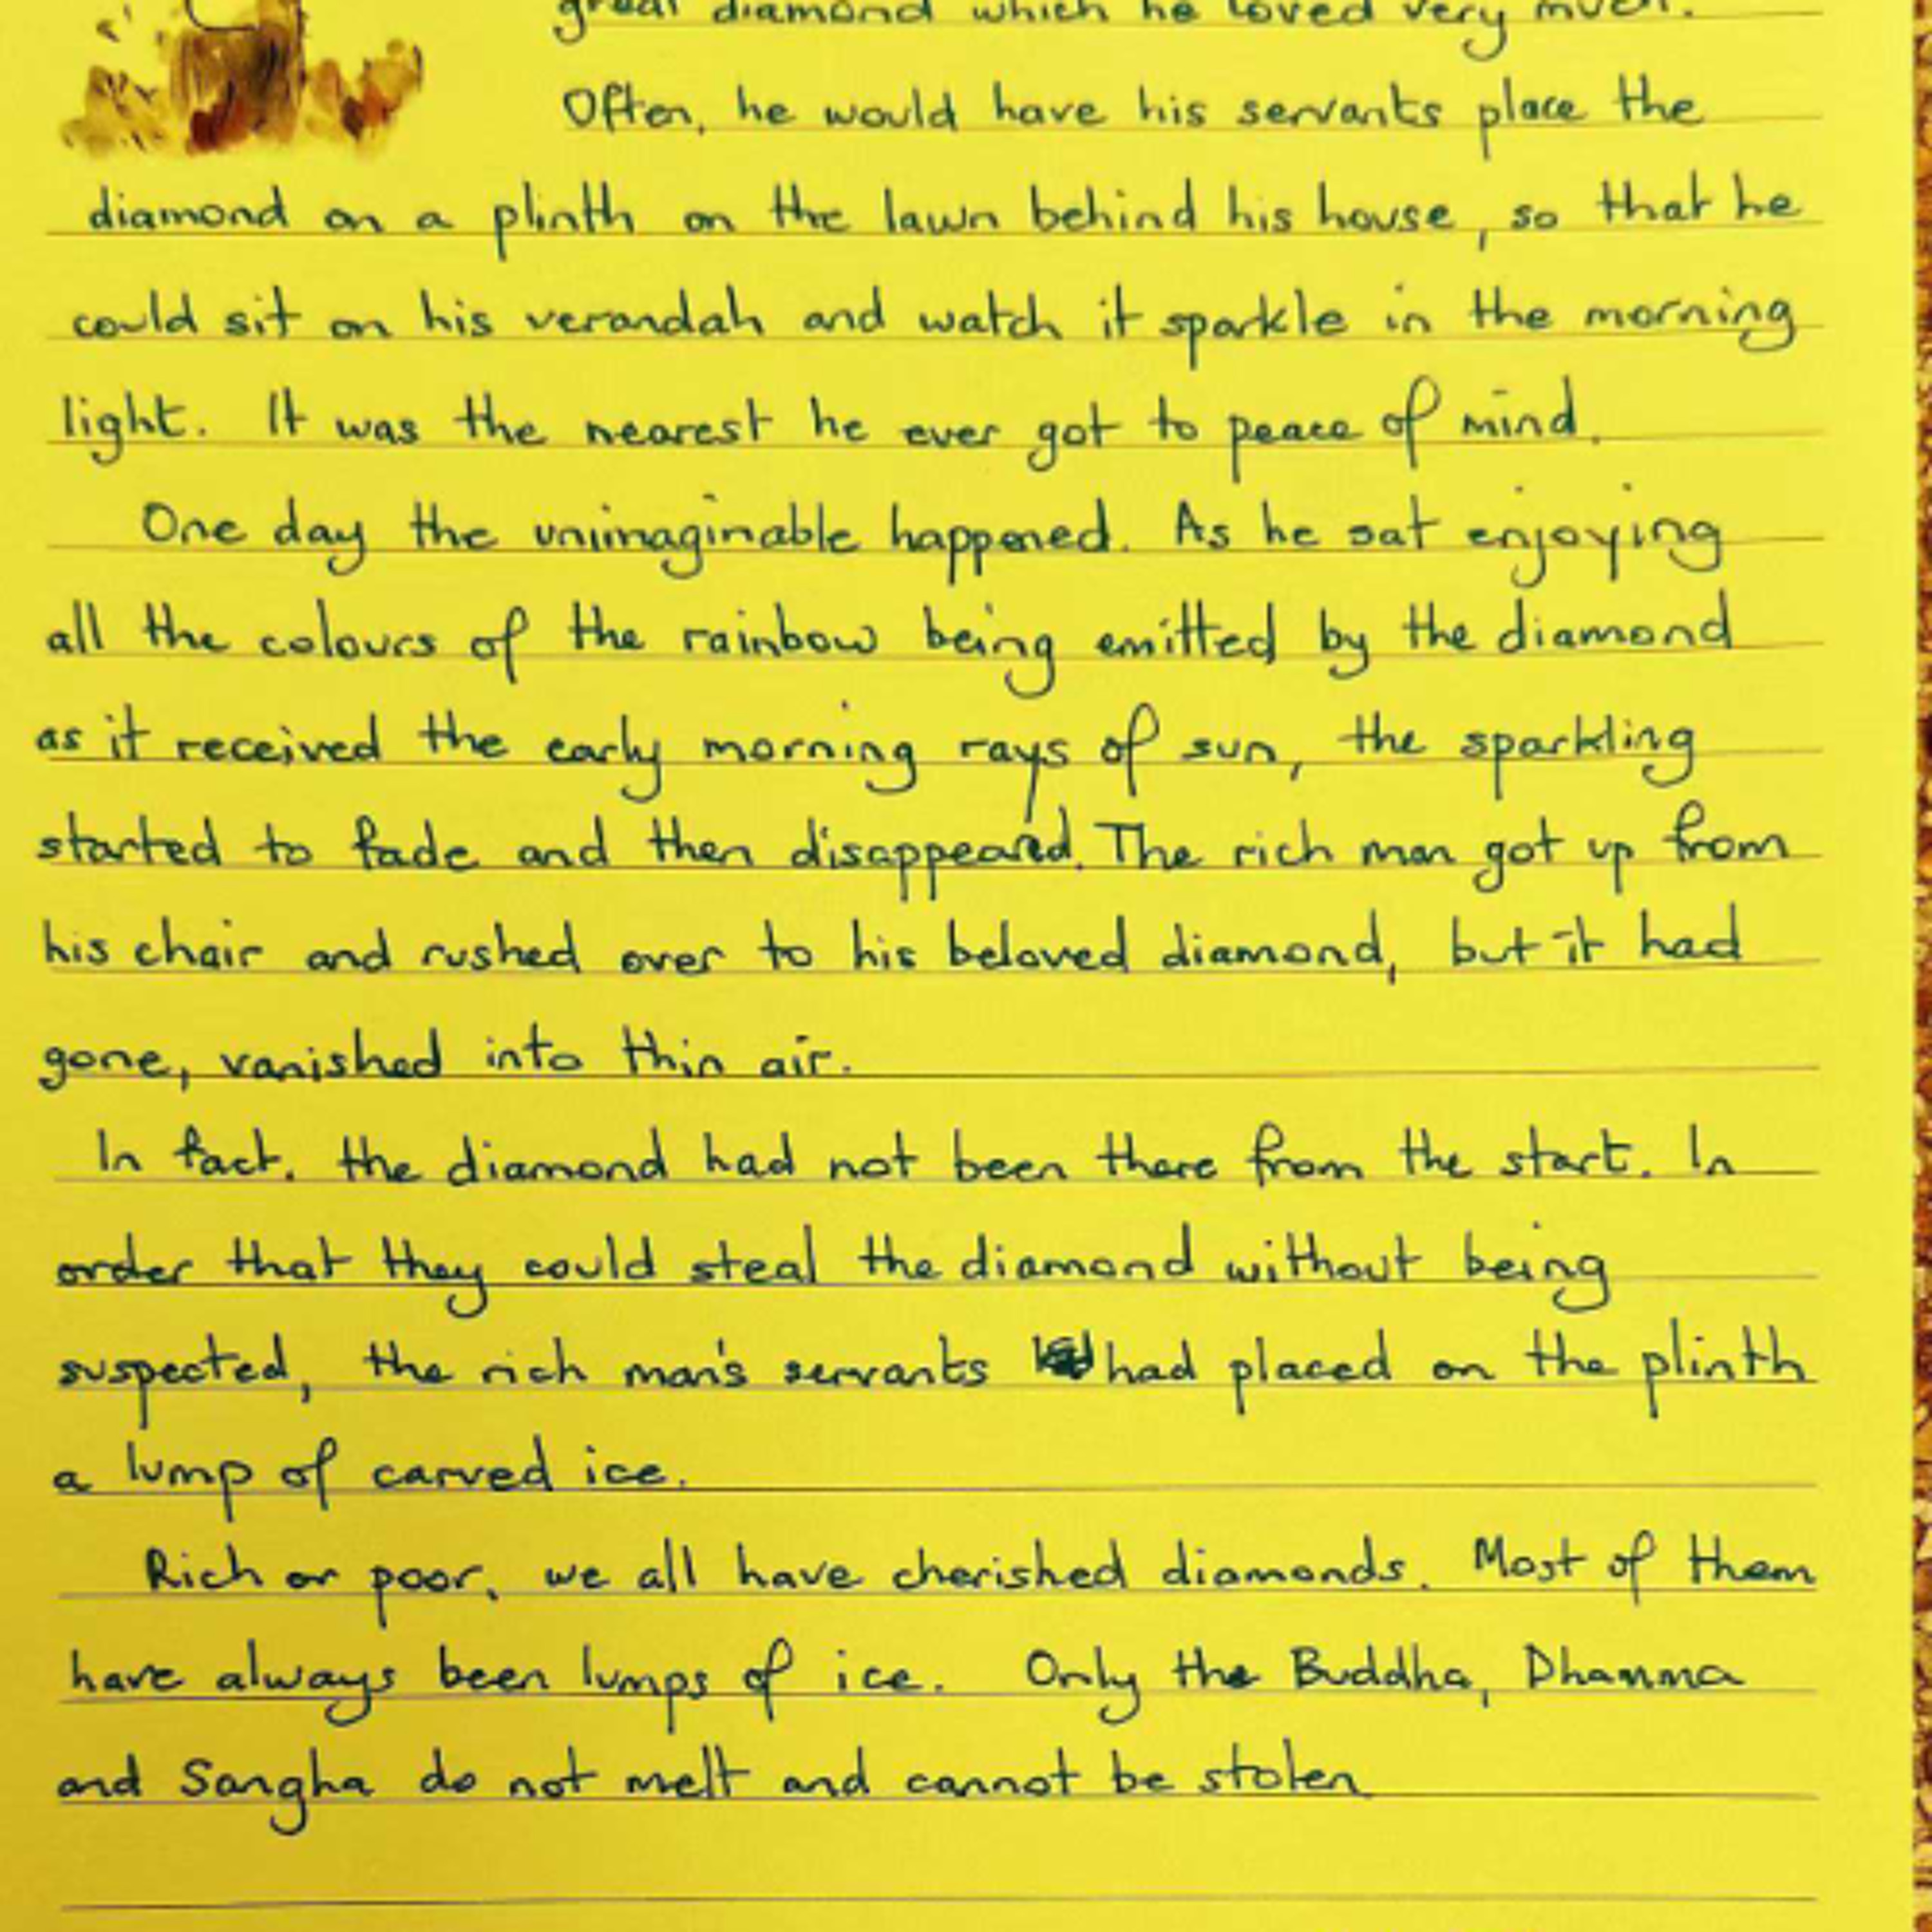 great diamond which he loved very much.
Often, he would have his servants place the
diamond on a plinth on the lawn behind his house, so that he
could sit on his verandah and watch it sparkle in the morning
light. It was the nearest he ever got to peace of mind.
One day the unimaginable happened. As he sat enjoying
all the colours of the rainbow being emitted by the diamond
as it received the early morning rays of sun, the sparkling
started to fade and then disappeared. The rich man got up from
his chair and rushed over to his beloved diamond, but it had
gone, vanished into thin air.
In fact. the diamond had not been there from the start. In
order that they could steal the diamond without being
suspected, the rich man's servants had placed on the plinth
a lump of carved ice.
Rich or poor, we all have cherished diamonds. Most of them
have always been lumps of ice. Only the Buddha, Dhamma
and Sangha do not melt and cannot be stolen